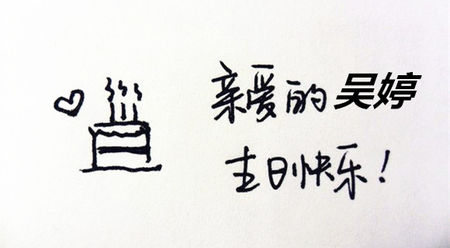 亲爱的吴婷
生日快乐！